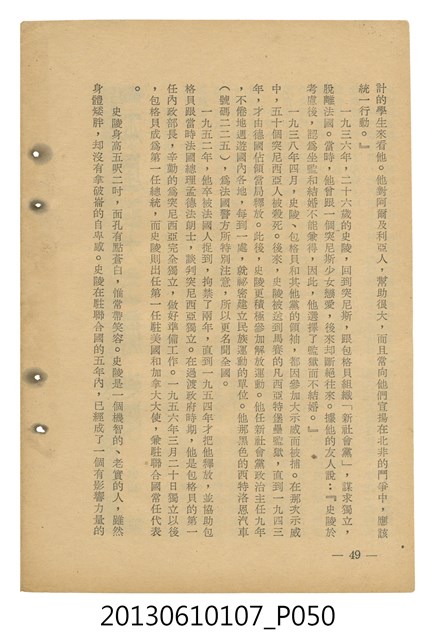 計的學生來看他。他對阿爾及利亞人，幫助很大，而且常向他們宣揚在北非的鬥爭中，應該
統一行動。』
一九三六年，二十六歲的史陵，回到突尼斯，跟包格貝組織「新社會黨」，謀求獨立，
脫離法國。當時，他曾跟一個突尼斯少女戀愛，後來却斷絕往來。據他的友人說：『史陵於
考慮後，認爲坐監和結婚不能兼得，因此，他選擇了監獄而不結婚。』
一九三八年四月，史陵、包格貝和其他黨的領袖，都因參加大示威而被捕。在那次示威
中，五十個突尼西亞人被殺死。後來，史陵被送到馬賽的凡西亞特堡壘監獄，直到一九四三
年，才由德國佔領當局釋放。此後，史陵更積極參加解放運動。他任新社會黨政治主任九年
，不倦地週遊國內各地，每到一處，就祕密建立民族運動的單位。他那黑色的西特洛恩汽車
（號碼二二五），爲法國警方所特別注意，所以更名聞全國。
一九五二年，他再被法國人捉到，拘禁了兩年，直到一九五四年才把他釋放，並協助包
格貝跟當時法國總理孟德法朗士，談判突尼西亞獨立。在過渡政府時期，他是包格貝的第一
任內政部長，辛勤的爲突尼西亞完全獨立，做好準備工作。一九五六年三月二十日獨立以後
，包格貝成爲第一任總統，而史陵則出任第一任駐美國和加拿大大使，兼駐聯合國常任代表
。
史陵身高五呎二吋，面孔有點蒼白，惟常帶笑容。史陵是一個機智的、老實的人，雖然
身體矮胖，却沒有拿破崙的自卑感。史陵在駐聯合國的五年內，已經成了一個有影響力量的
— 49 —
20130610107_P050